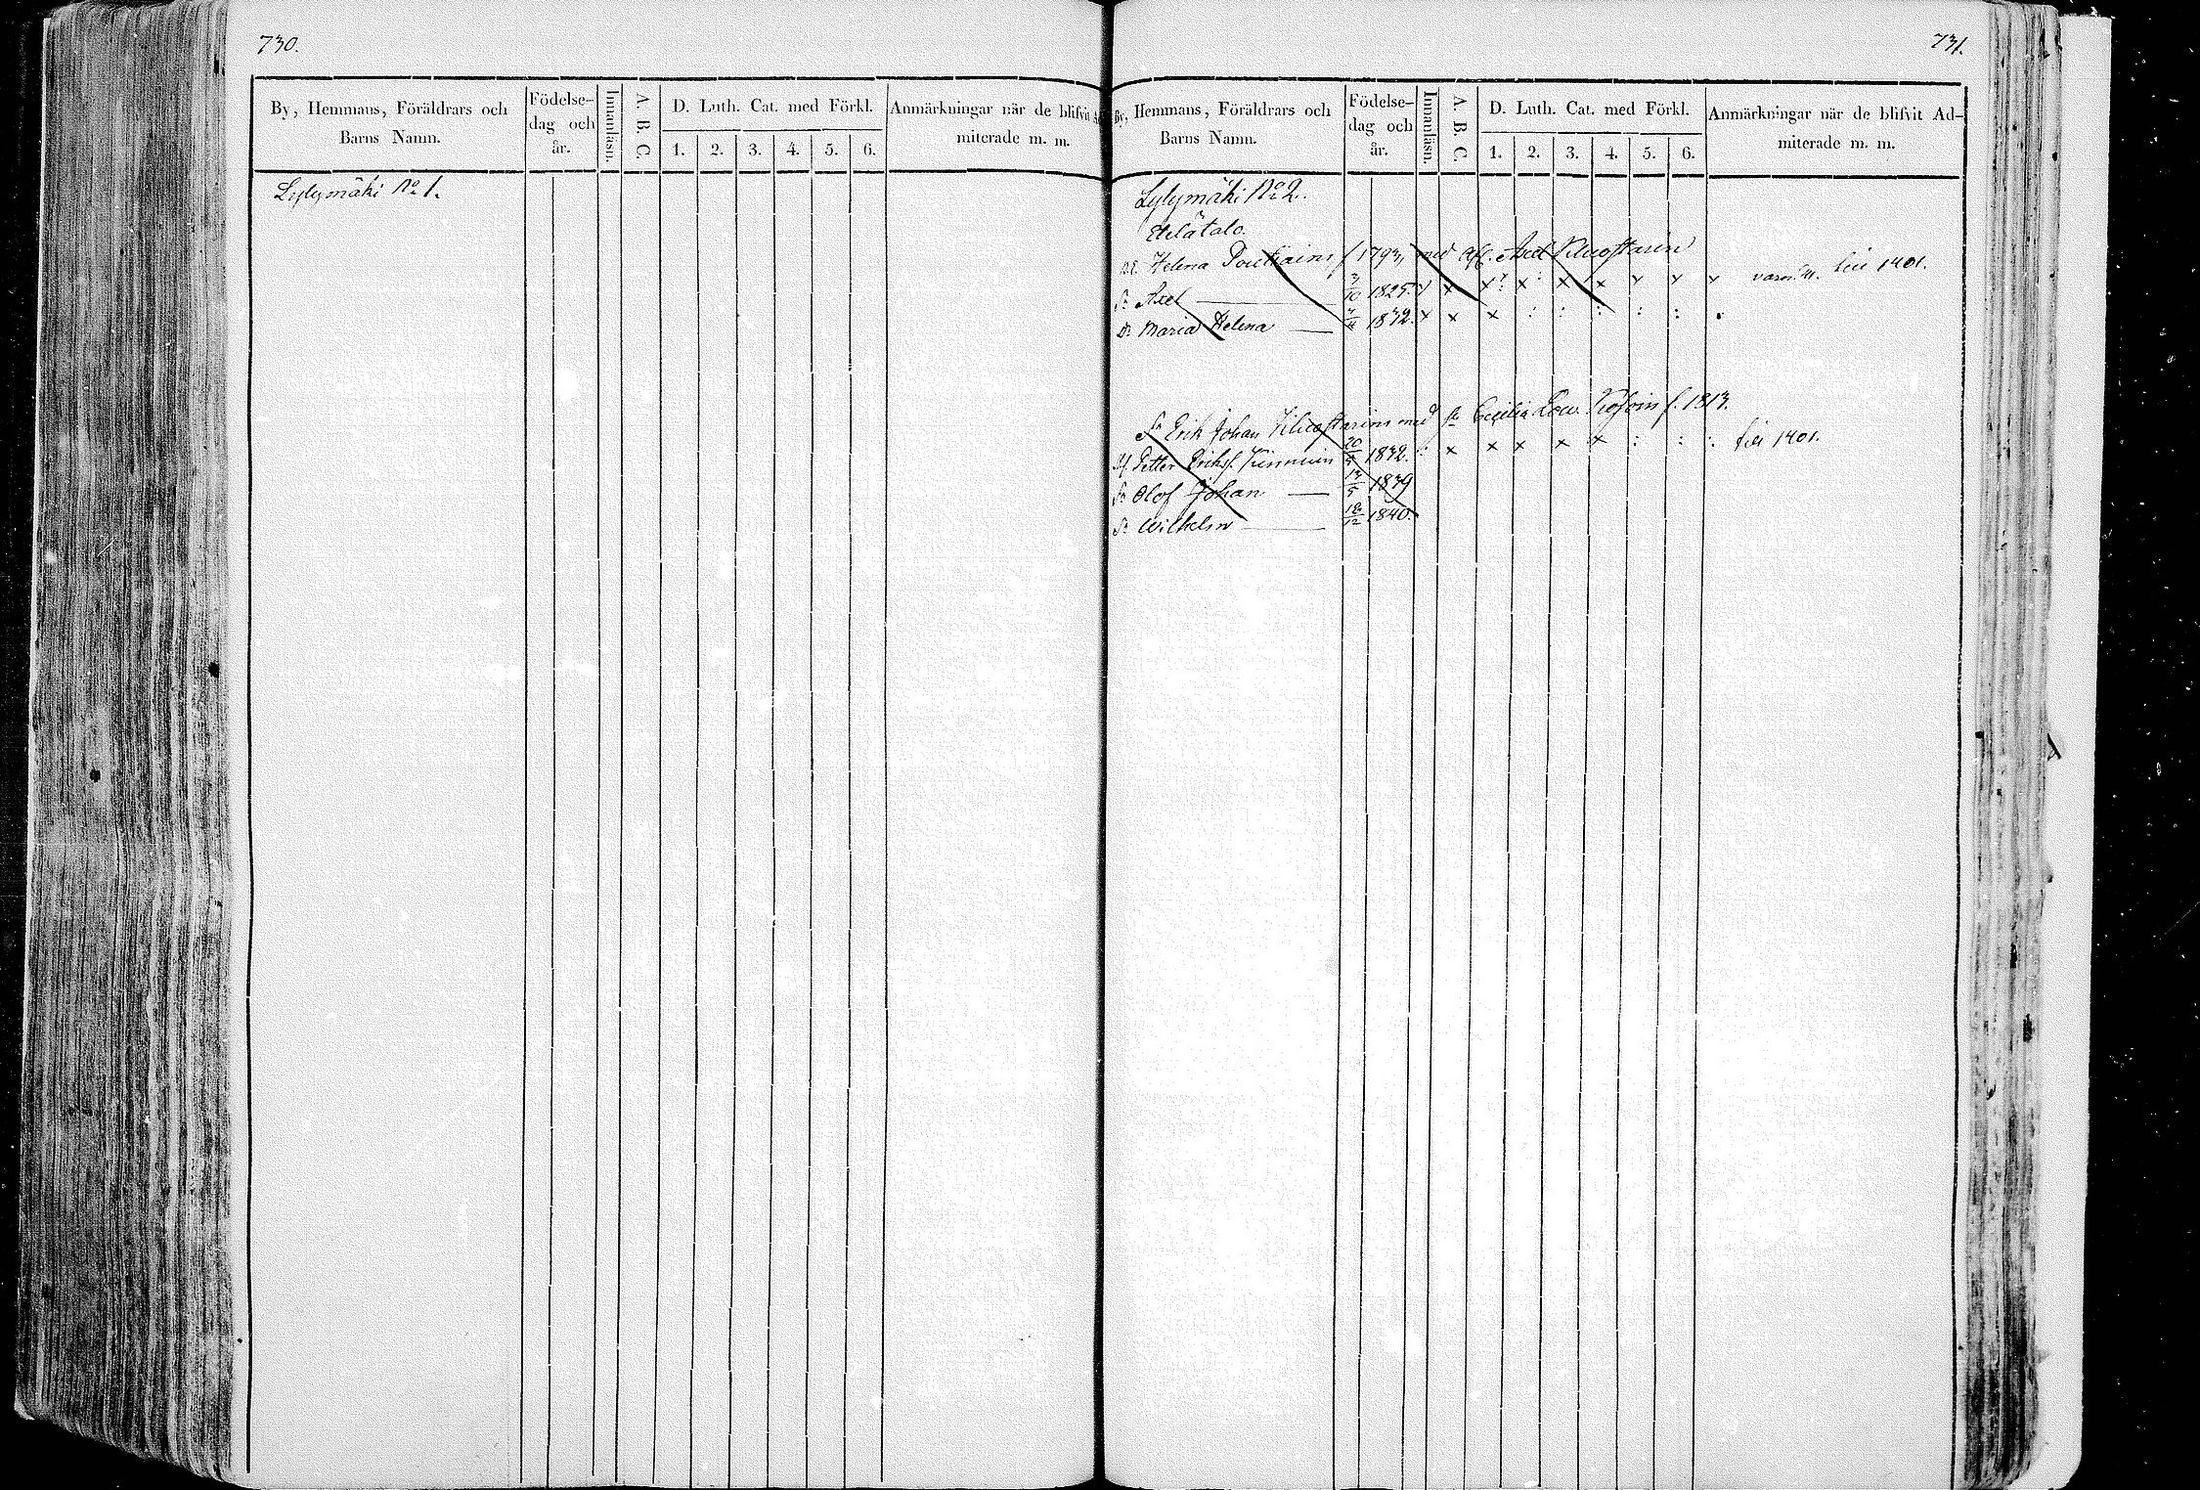 730.
By, Hemmans, Föräldrars och Barns Namn.
Födelse-dag och år.
Innanläsn.
A. B. C.
D. Luth. Cat. med Förkl.
1. 2. 3. 4. 5. 6.
Anmärkningar när de blifvit Ad-miterade m. m.
Lylymäki No 1.
731.
By, Hemmans, Föräldrars och Barns Namn.
Födelse-dag och år.
Innanläsn.
A. B. C
D. Luth. Cat. med Förkl.
1. 2. 3. 4. 5. 6.
Anmärkningar när de blifvit Ad-miterade m. m.
Lylymäki No 2.
Etelätalo.
Helena f 1793, med Axel
Sn Axel 3/10 1825. x x x x x x 1401.
Dr Maria Helena 1832. x x x : : : : :
Sn Erik Johan med Cecilia f. 1813.
Petter Eriks. 20/ 1832. : x x x x x : : : 1401.
Sn Olof Johan /5 1839
Sn Wilhelm 18/12 1840.